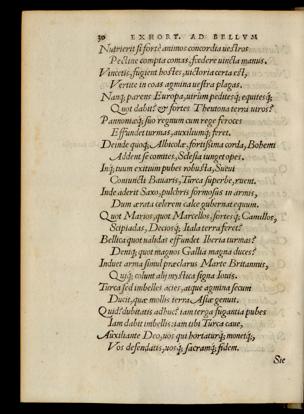 30 EXHORT. AD BELLVM
Nutrierit si fortè animos concordia uestros
Pectine compta comas, fœdere uincta manus.
Vincetis, fugient hostes, uictoria certa est,
Vertite in eoas agmina uestra plagas.
Nanq; parens Europa, uirûm peditesq; equitesq;
Quot dabit? & fortes Theutona terra uiros?
Pannoniæq; suo regnum cum rege feroces
Effundet turmas, auxiliumq; feret.
Deinde quoq; Albicolæ, fortissima corda, Bohemi
Addent se comites, Sclesia iunget opes.
Inq; tuum exitium pubes robusta, Sueui
Coniuncti Bauaris, Turca superbe, ruent.
Inde aderit Saxo, pulchris formosus in armis,
Dum ærata celerem calce gubernat equum.
Quot Marios, quot Marcellos, fortesq; Camillos,
Scipiadas, Deciosq; Itala terra feret?
Bellica quot ualidas effundet Iberia turmas?
Deniq; quot magnos Gallia magna duces?
Induet arma simul præclarus Marte Britannus,
Quiq; colunt alij mystica signa Iouis.
Turca sed imbelles acies, atque agmina secum
Ducit, quæ mollis terra Asiæ genuit.
Quid? dubitatis adhuc? iam terga fugantia pubes
Iam dabit imbellis: iam tibi Turca caue,
Auxiliante Deo, uos qui hortaturq; monetq;,
Vos defendatis, uosq; sacramq; fidem.
Sic